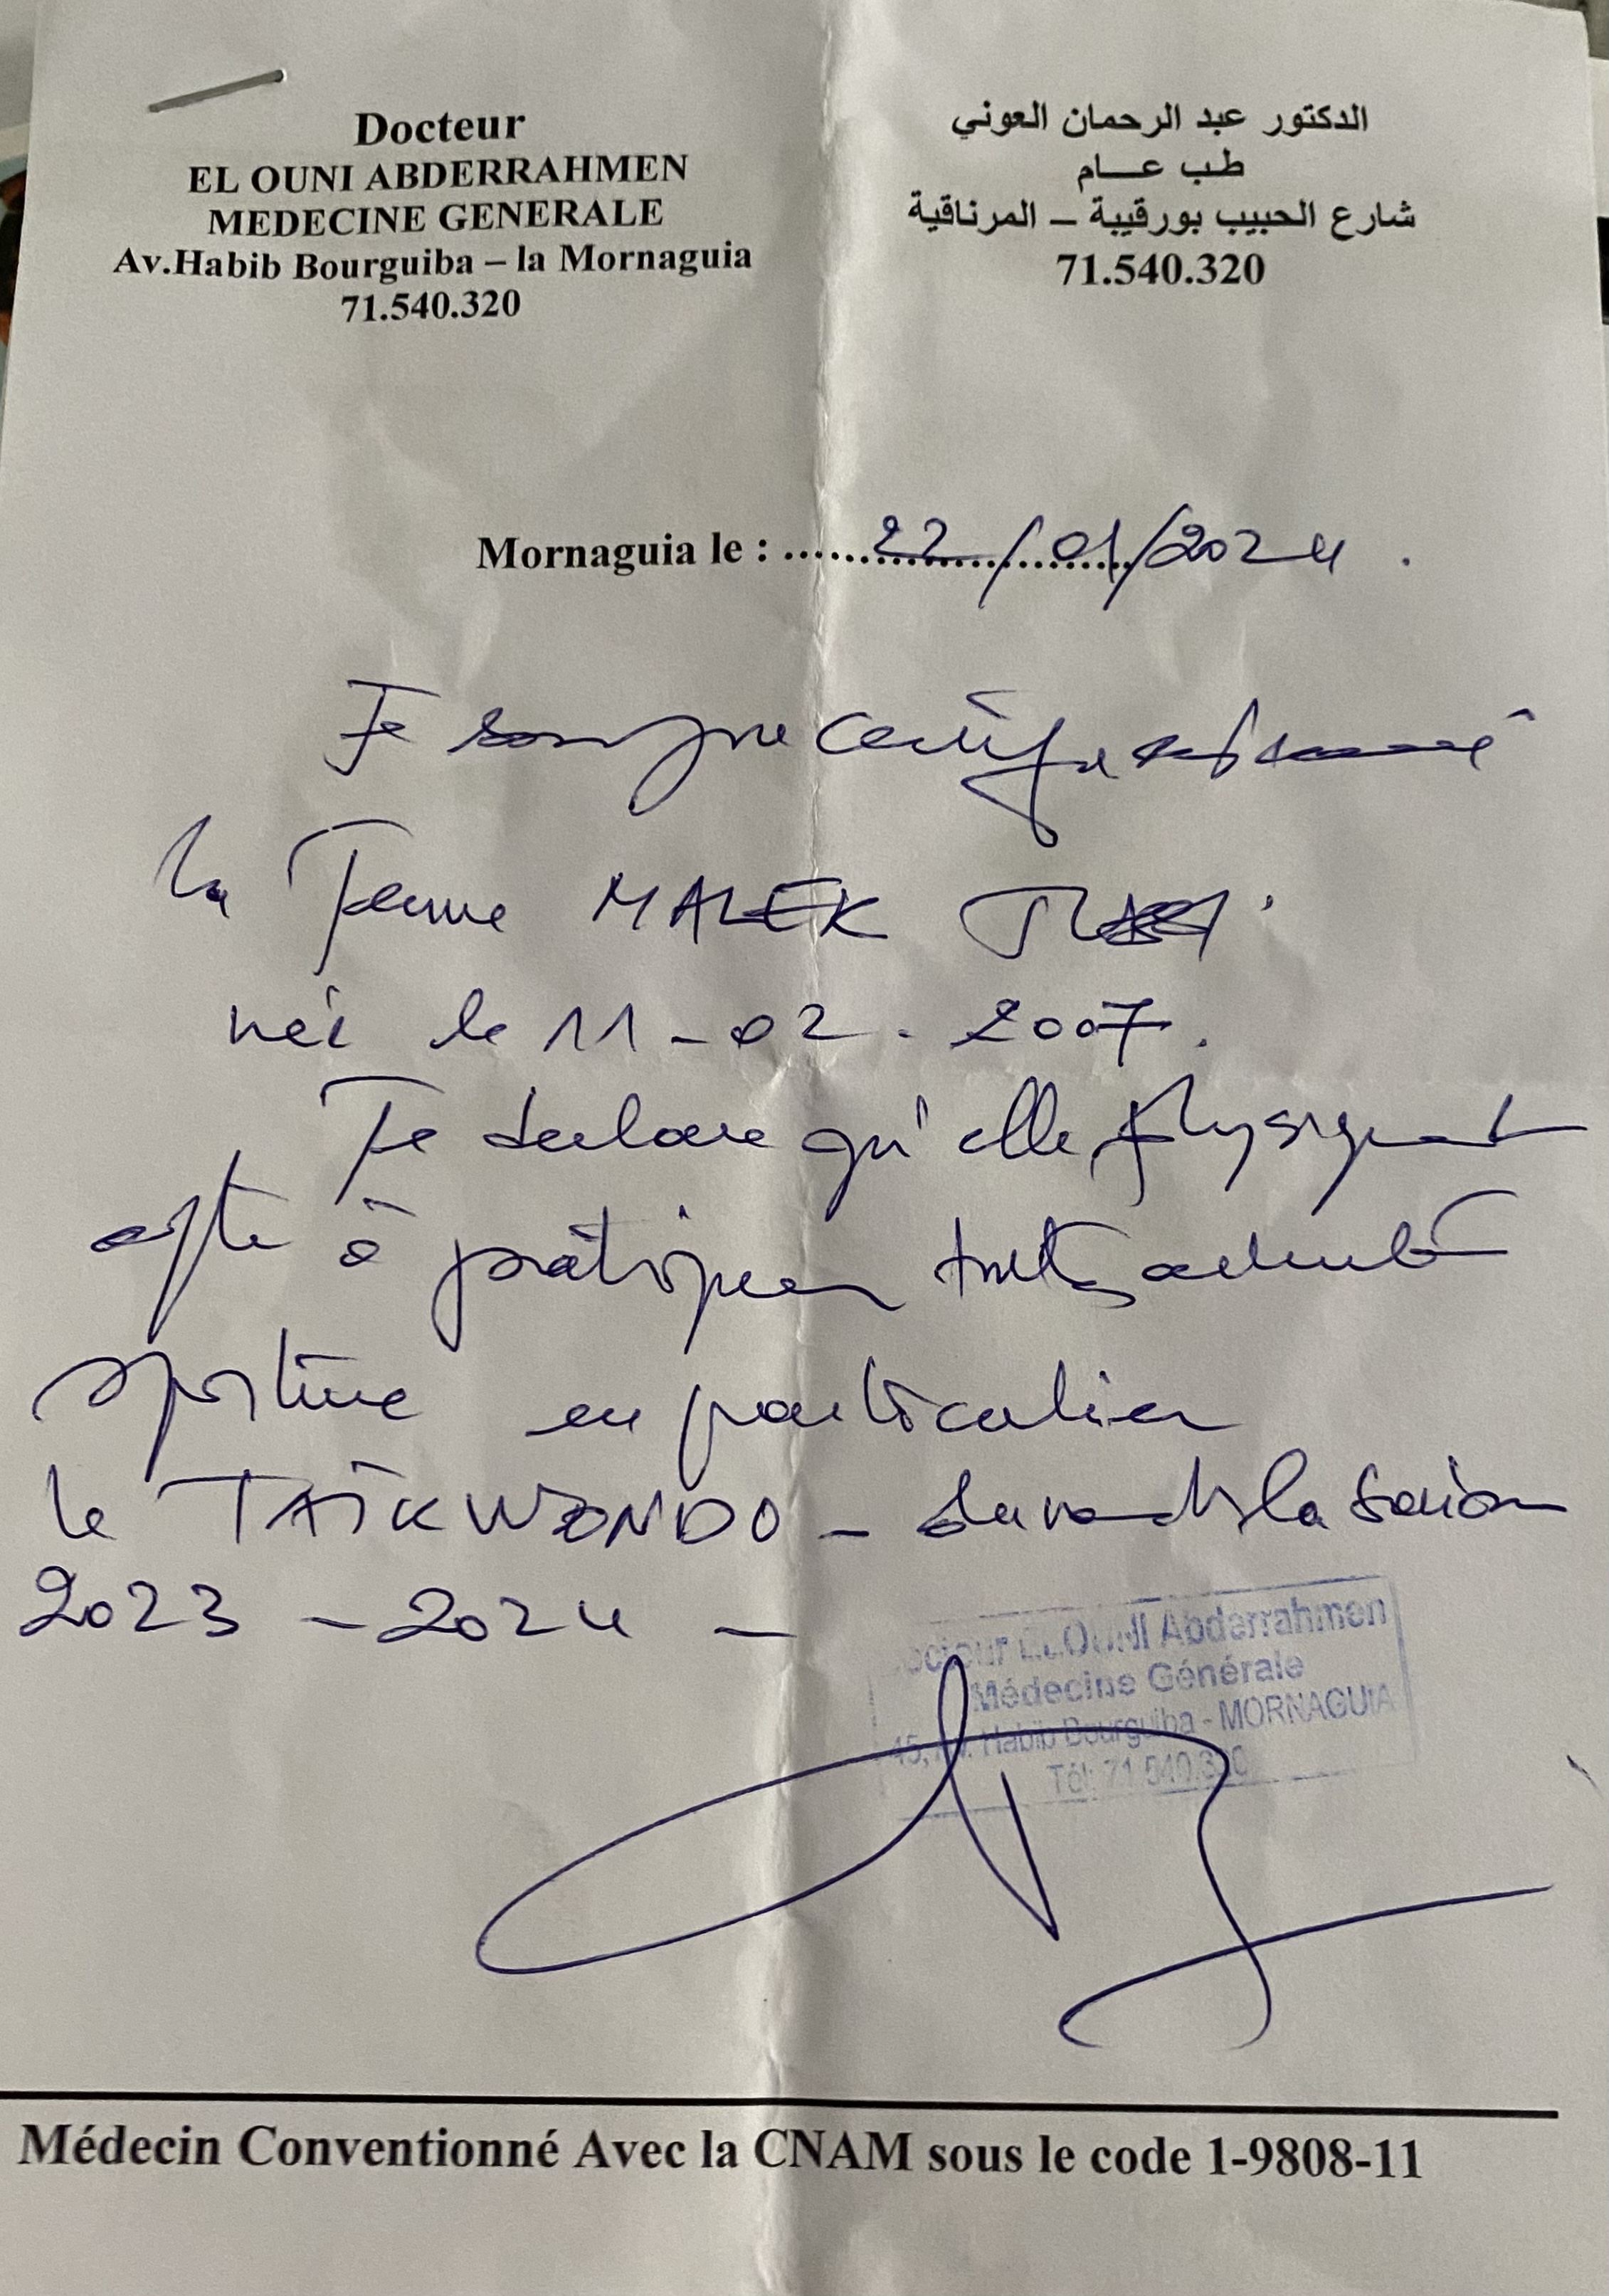 Docteur
EL OUNI ABDERRAHMEN
MEDECINE GENERALE
Av.Habib Bourguiba – la Mornaguia
71.540.320
الدكتور عبد الرحمان العوني
طب عـــام
شارع الحبيب بورقيبة – المرناقية
71.540.320
Mornaguia le : 22/01/2024.
Je soussigné certifie
la Jeune MALEK
née le 11-02-2007.
Je declare qu'elle physiquement
apte à pratiquer toutes activité
sportive en particulier
le TAIKWONDO - durant la saison
2023 - 2024 -
Docteur ELOUNI Abderrahmen
Médecine Générale
45, Av. Habib Bourguiba - MORNAGUIA
Tél: 71 540.320
Médecin Conventionné Avec la CNAM sous le code 1-9808-11